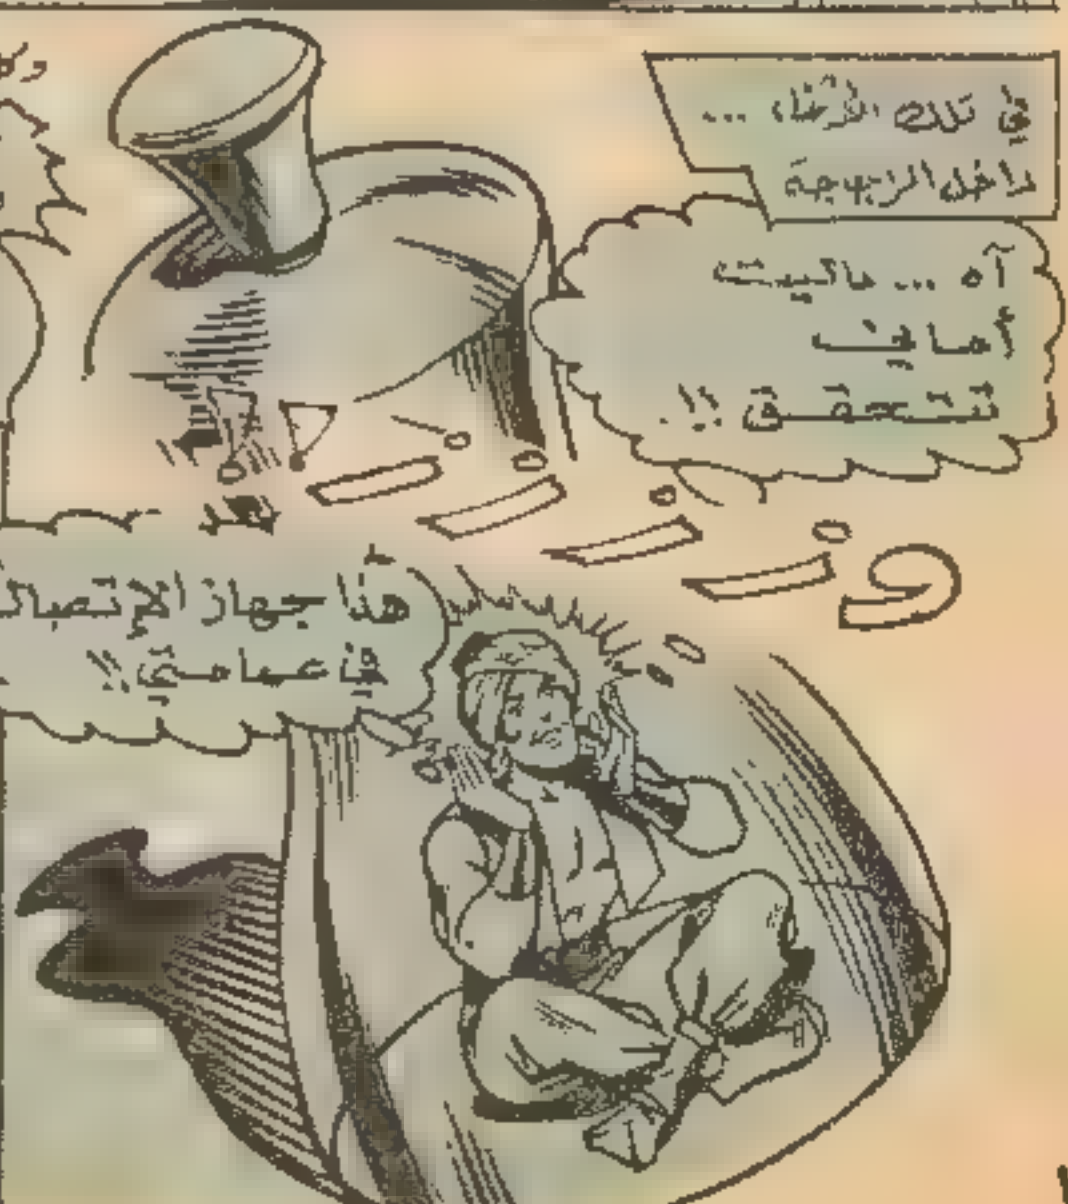 في تلك الأثناء ...
داخل الزجاجة
آه ... ماليت
أماني
تتحقق !!.
ونـنـنـنـن !!
هذا جهاز الإتصال
في عمامتي !!